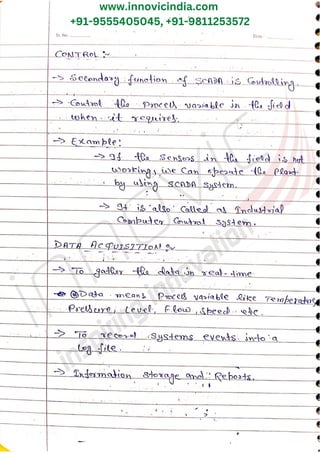 www.innovicindia.com
+91-9555405045, +91-9811253572
Sr. No.
Date
CONTROL :-
-> Secondary function of SCADA is Controlling.
-> Control the Process variable in the field
when it requires.
-> Example:
-> If the Sensors in the field is not
working, we can operate the Plant
by using SCADA System.
-> It is also Called as Industrial
Computer Control System.
DATA ACQUISITION :-
-> To gather the data in real-time
-> Data means Process variable like Temperature
Pressure, Level, Flow, Speed etc.
-> To record Systems events into a
log file.
-> Information storage and Reports.